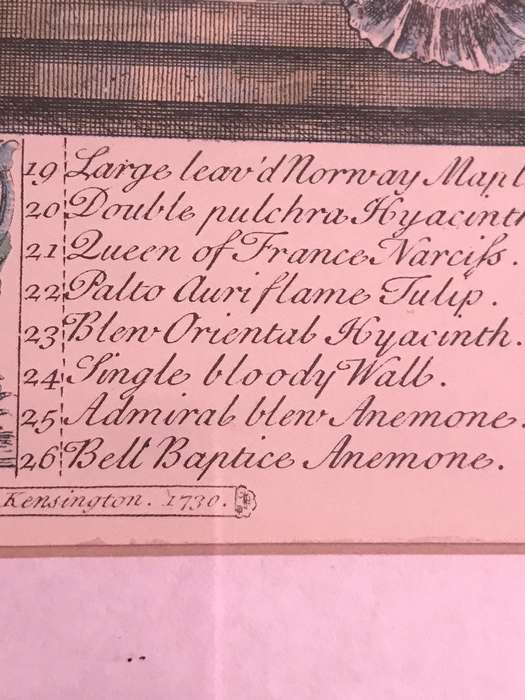 19 Large leav'd Norway Mapl
20 Double pulchra Hyacinth
21 Queen of France Narciss.
22 Palto Auri flame Tulip.
23 Blew Oriental Hyacinth.
24 Single bloody Wall.
25 Admiral blew Anemone.
26 Bell Baptice Anemone.
Kensington. 1730.